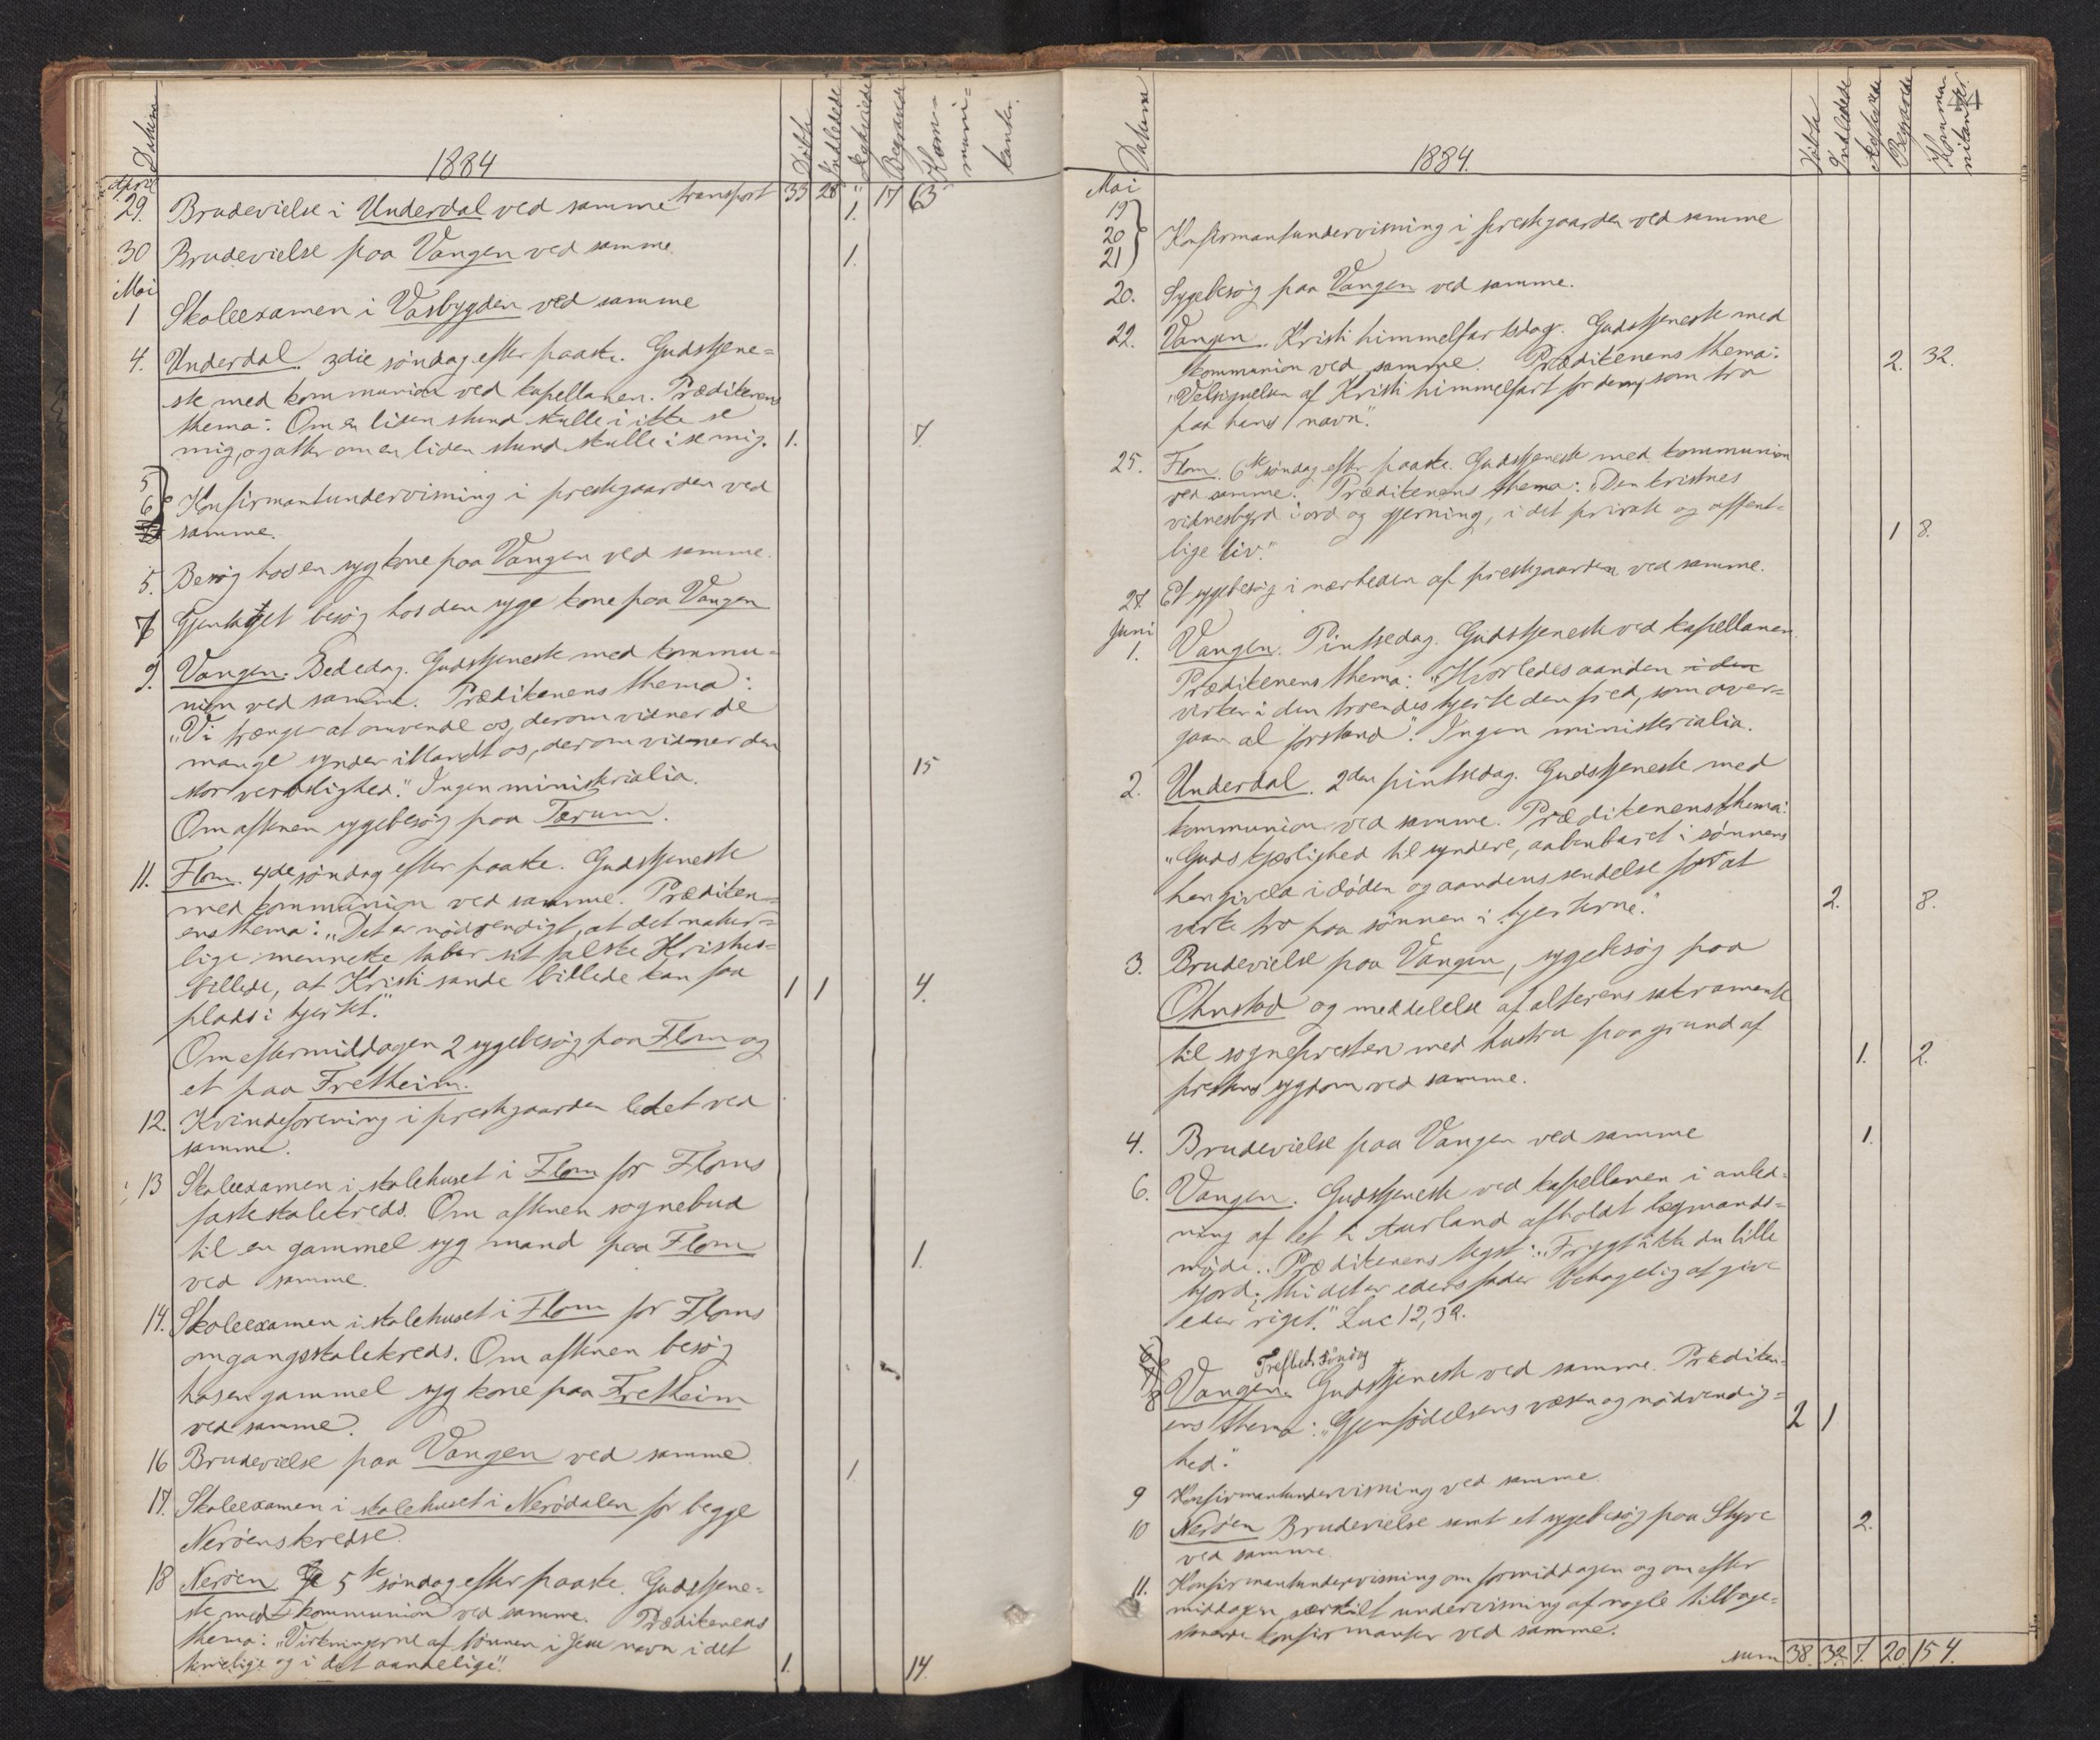 Datum
1884
Døbte
Indledede
Ægteviede
Begravede
Kom-
muni-
kanter.
April
transport 33 28 " 17 63
29. Brudevielse i Underdal ved samme 1.
30 Brudevielse paa Vangen ved samme 1.
Mai
1 Skoleexamen i Vasbygden ved samme
4. Underdal. 3die søndag efter paaske. Gudstjene=
ste med kommunion ved kapellanen. Prædikenens
thema: Om en liden stund skulle i ikke se
mig, og atter om en liden stund skulle i se mig. 1. 7.
5
6 Konfirmantundervisning i prestgaarden ved
samme.
5. Besøg hos en syg kone paa Vangen ved samme.
7 Gjentaget besøg hos den syge kone paa Vangen
9. Vangen. Bededag. Gudstjeneste med kommu=
nion ved samme. Prædikenens thema:
"Vi trænger at omvende os, derom vidner de
mange synder iblandt os, derom vidner den
stor verdslighed." Ingen ministerialia. 15
Om aftenen sygebesøg paa Terum.
11. Flom. 4de søndag efter paaske. Gudstjeneste
med kommunion ved samme. Prædiken=
ens thema: "Det er nødvendigt, at det natur=
lige menneske taber sit falske Kristus=
billede, at Kristi sande billede kan faa
plads i hjertet." 1 1 4.
Om eftermiddagen 2 sygebesøg paa Flom og
et paa Fretheim.
12. Kvindeforening i prestgaarden ledet ved
samme.
13 Skoleexamen i skolehuset i Flom for Floms
fasteskolekreds. Om aftenen sognebud
til en gammel syg mand paa Flom 1.
ved samme.
14. Skoleexamen i skolehuset i Flom for Floms
omgangsskolekreds. Om aftenen besøg
hos en gammel syg kone paa Fretheim
ved samme.
16 Brudevielse paa Vangen ved samme 1
17. Skoleexamen i skolehuset i Nerødalen for begge
Nerøens kredse.
18 Nerøen. 5te søndag efter paaske. Gudstjene=
ste med kommunion ved samme. Prædikenens
thema: "Virkningerne af bønnen i Jesu navn i det
timelige og i det aandelige". 1. 14.
Datum
1884.
Døbte
Indledede
Ægteviede
Begravede
Kommu
nikanter.
Mai
19
20 Konfirmantundervisning i prestgaarden ved samme
21
20. Sygebesøg paa Vangen ved samme.
22. Vangen. Kristi himmelfartsdag. Gudstjeneste med
kommunion ved samme. Prædikenens thema: 2. 32.
"Velsignelsen af Kristi himmelfart for dem, som tro
paa hans navn".
25. Flom. 6te søndag efter paaske. Gudstjeneste med kommunion
ved samme. Prædikenens thema: "Den kristnes
vidnesbyrd i ord og gjerning, i det private og offent=
lige liv." 1 8.
27. Et sygebesøg i nærheden af prestgaarden ved samme.
Juni
1. Vangen. Pintsedag. Gudstjeneste ved kapellanen.
Prædikenens thema: "Hvorledes aanden i den
virker i den troendes hjerte den fred, som over=
gaar al forstand". Ingen ministerialia.
2. Underdal. 2den pintsedag. Gudstjeneste med
kommunion ved samme. Prædikenens thema:
"Guds kjærlighed til syndere, aabenbaret i sønnens
hengivelse i døden og aandens sendelse for at
virke tro paa sønnen i hjerterne." 2. 8.
3. Brudevielse paa Vangen, sygebesøg paa
Ohnstad og meddelelse af alterens sakramente
til sognepresten med hustru paa grund af 1. 2.
prestens sygdom ved samme.
4. Brudevielse paa Vangen ved samme 1.
6. Vangen. Gudstjeneste ved kapellanen i anled=
ning af et i Aurland afholdt lægmands=
møde. Prædikenens tegst: "Frygt ikke du lille
hjord; thi det er eders fader behagelig at give
eder riget." Luc 12,32.
Trefoldh. søndag
8 Vangen. Gudstjeneste ved samme. Prædiken=
ens thema: "Gjenfødelsens væsen og nødvendig= 2 1
hed."
9 Konfirmantundervisning ved samme.
10 Nerøen Brudevielse samt et sygebesøg paa Styve 2.
ved samme.
11. Konfirmantundervisning om formiddagen og om efter
middagen særskilt undervisning af nogle tilbage=
staaende konfirmanter ved samme.
sum 38. 32 7. 20 154.